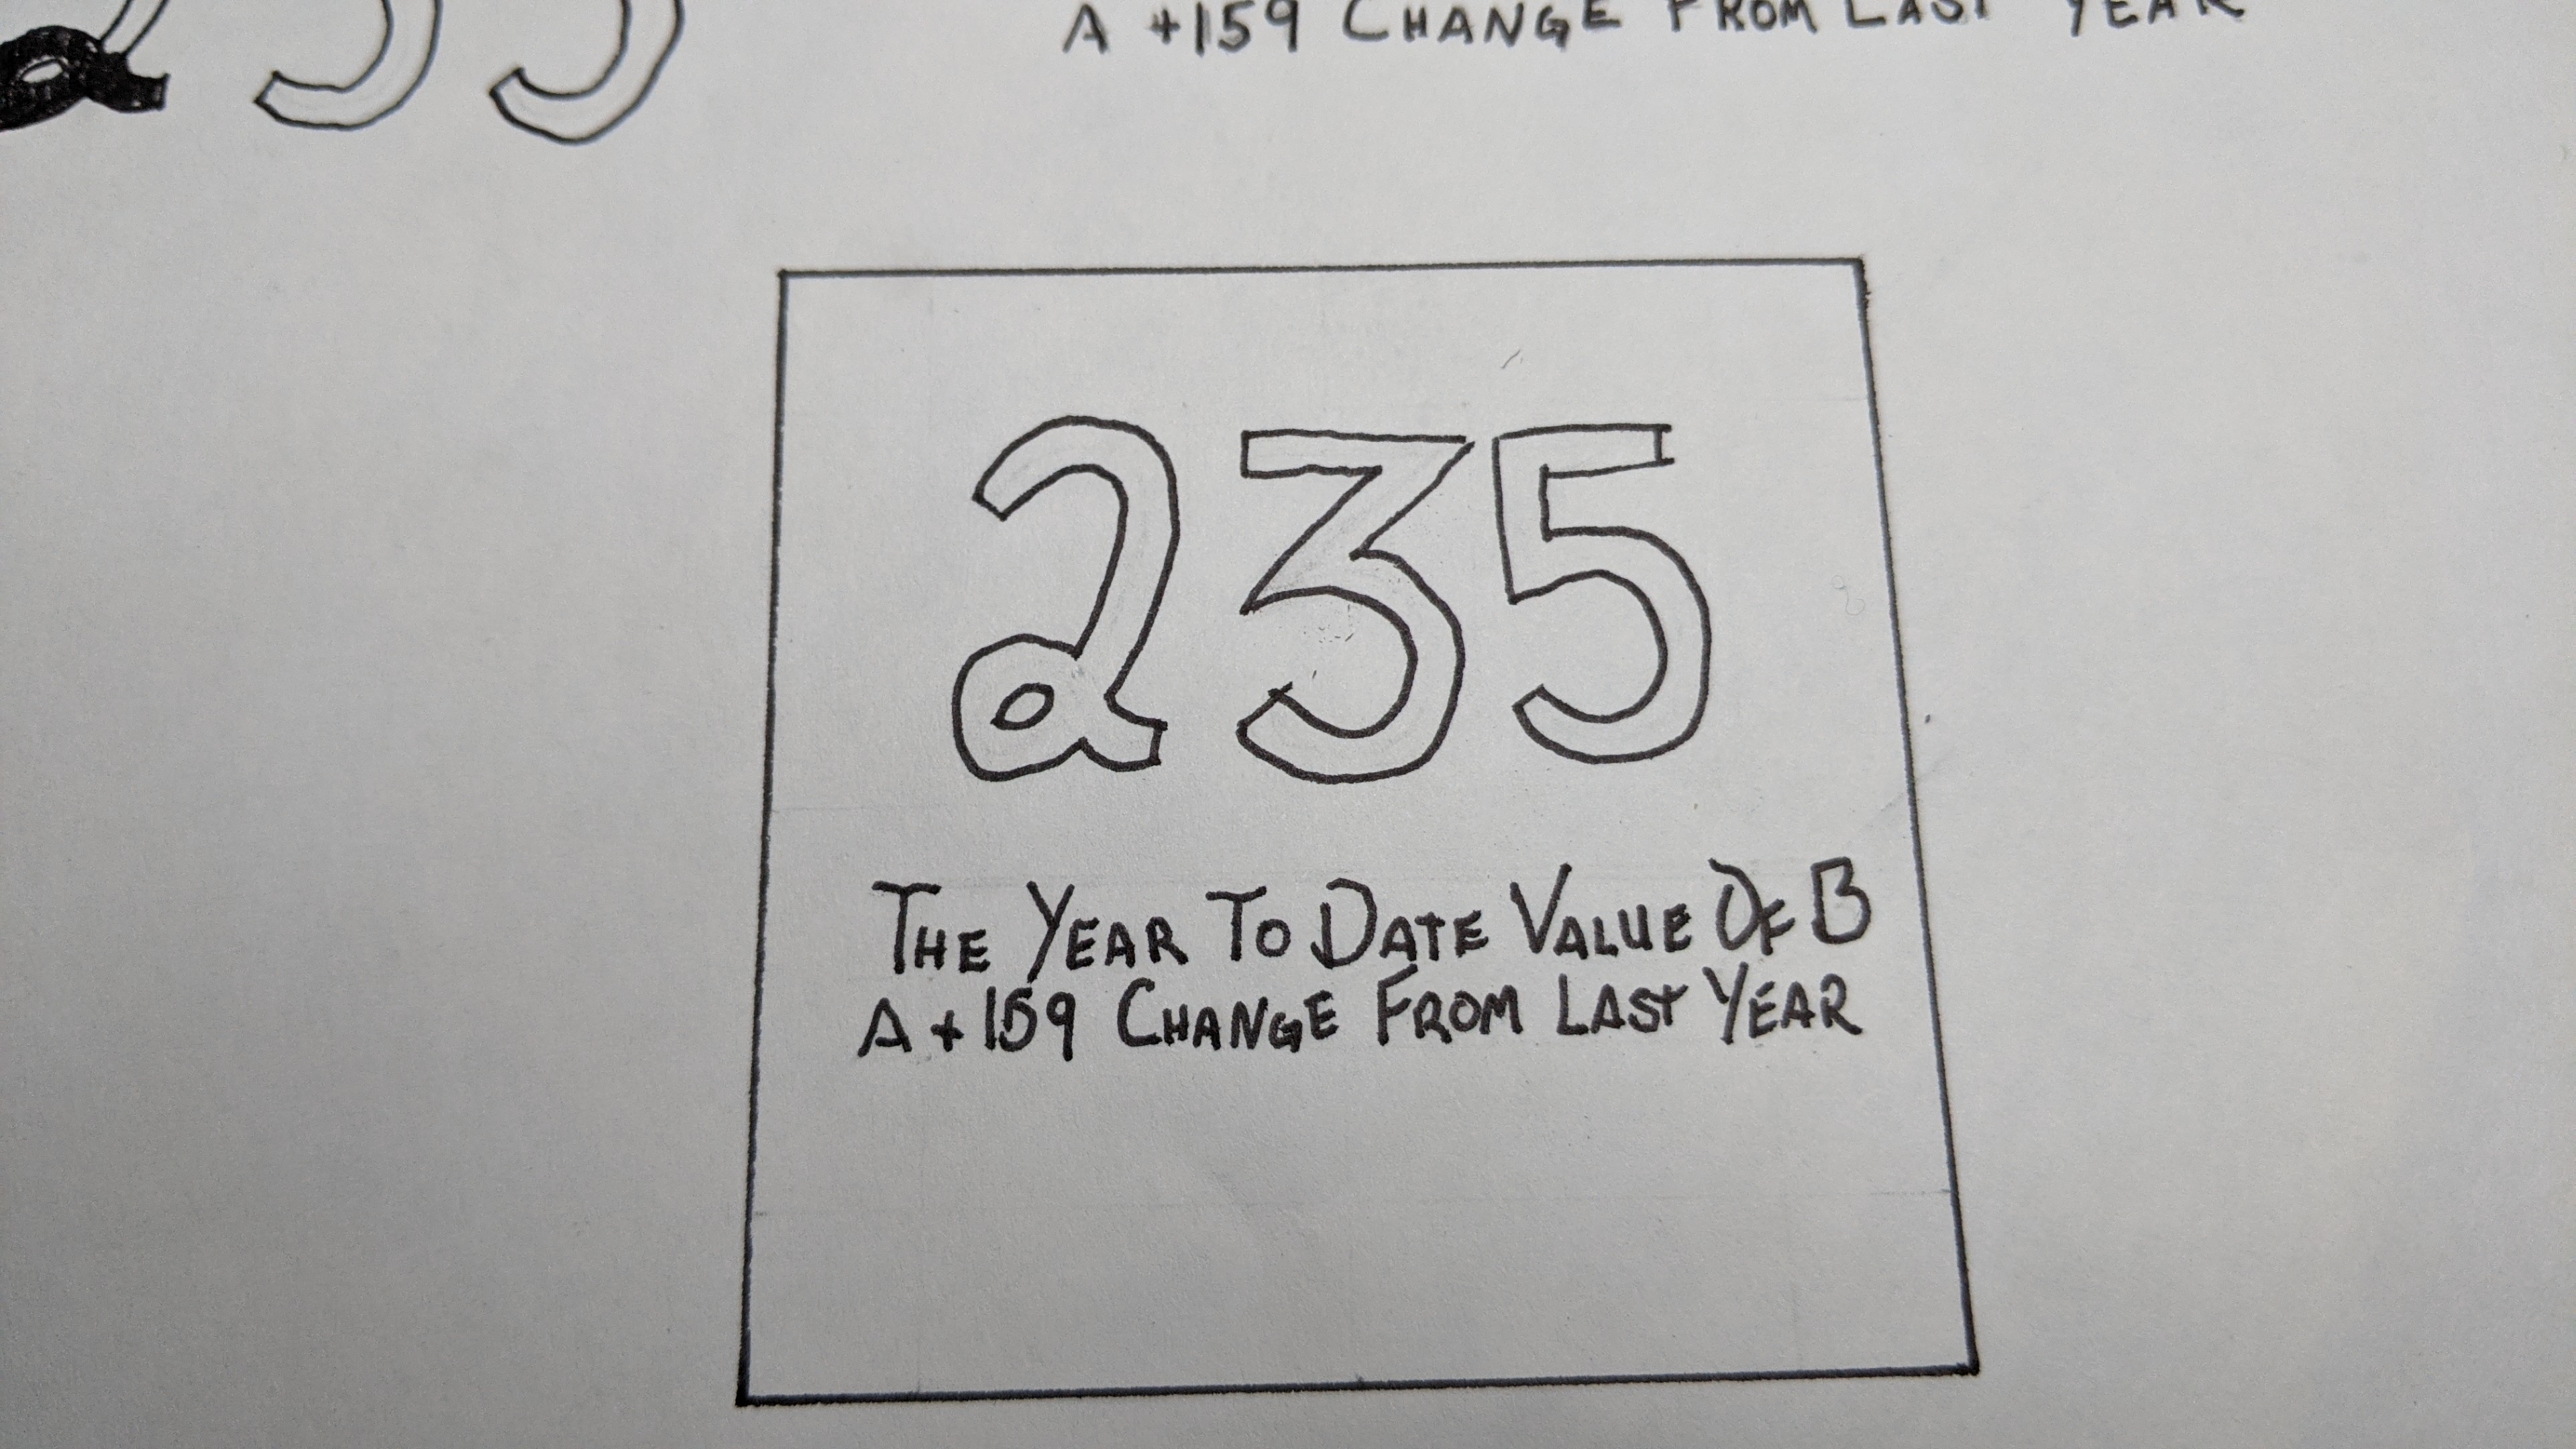 235
A +159 CHANGE FROM LAST YEAR
235
THE YEAR TO DATE VALUE OF B
A +159 CHANGE FROM LAST YEAR